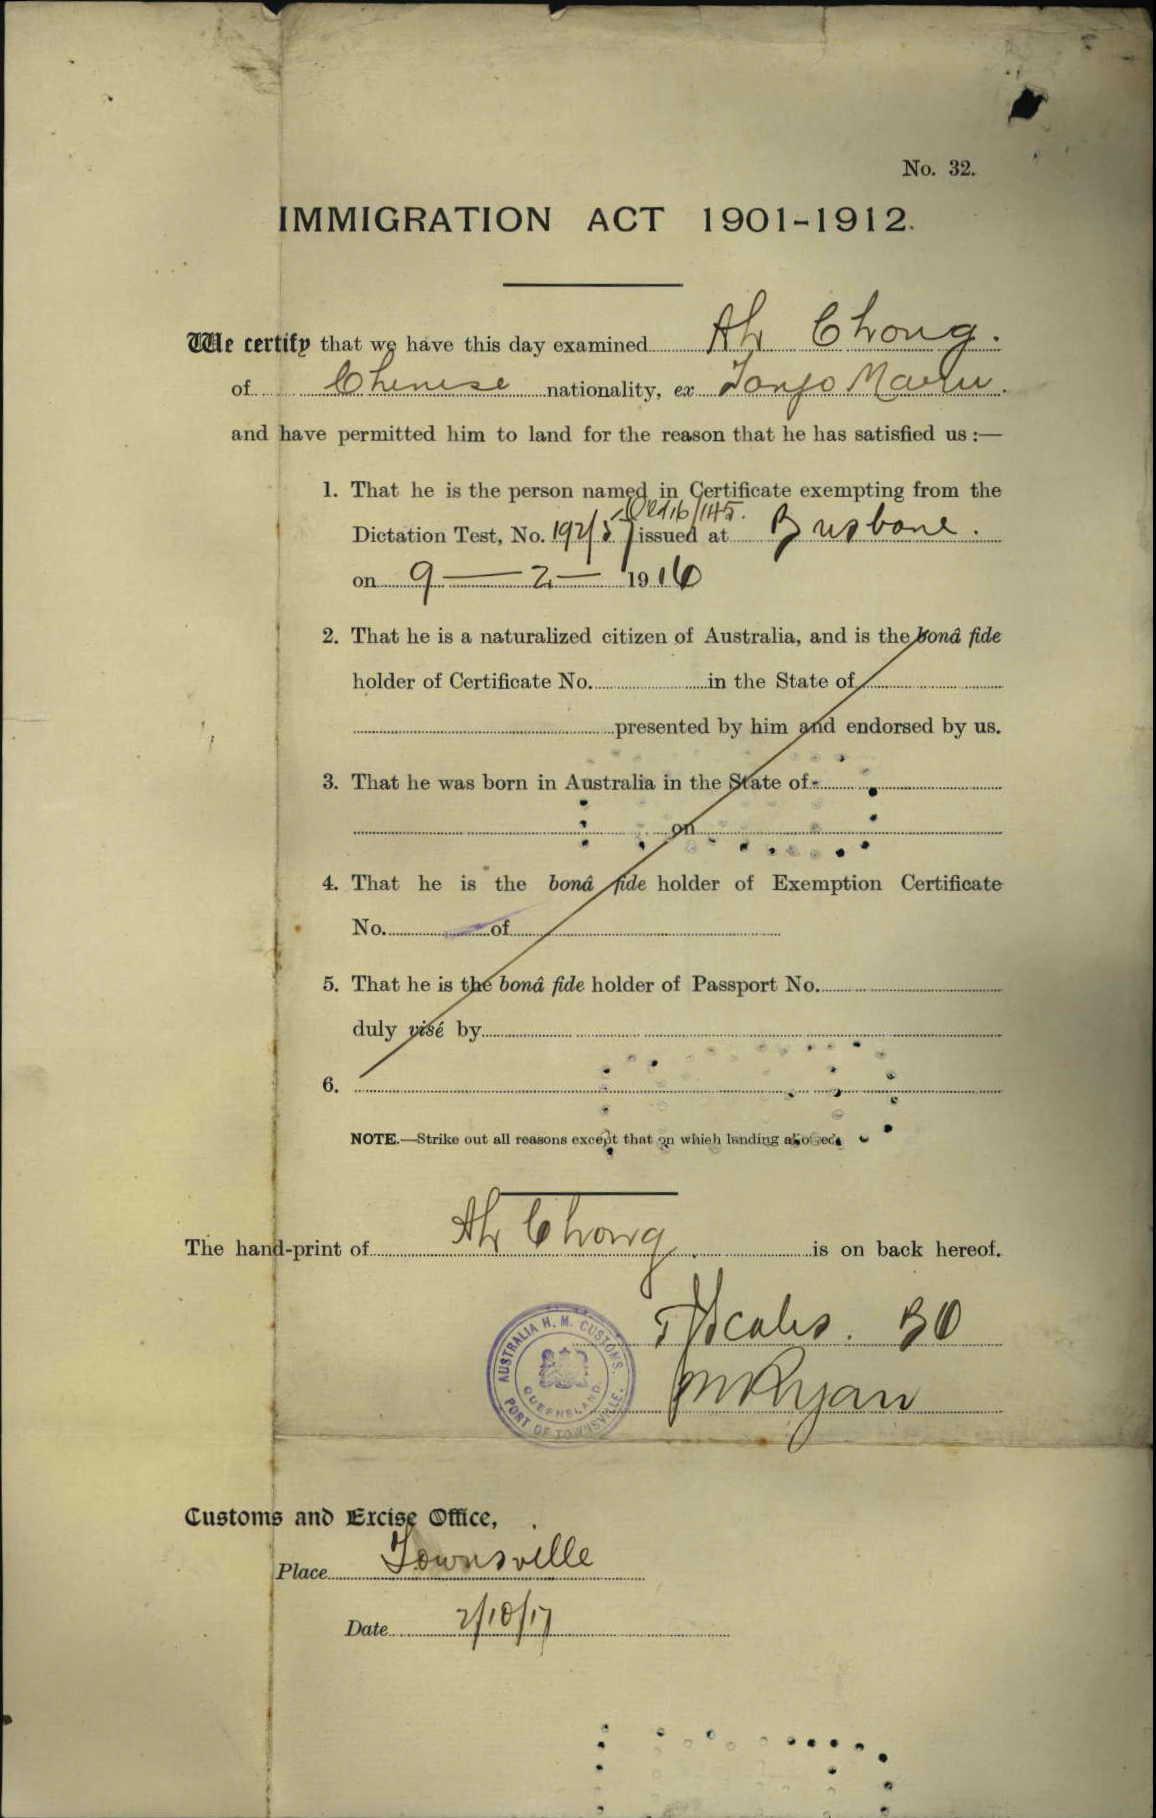 No. 32.
IMMIGRATION ACT 1901-1912.
We certify that we have this day examined Ah Chong.
of Chinese nationality, ex Tango Maru.
and have permitted him to land for the reason that he has satisfied us :—
1. That he is the person named in Certificate exempting from the
Dictation Test, No. 192/57 issued at Brisbane.
on 9 — 2 — 1916
2. That he is a naturalized citizen of Australia, and is the bonâ fide
holder of Certificate No. in the State of
presented by him and endorsed by us.
3. That he was born in Australia in the State of
on
4. That he is the bonâ fide holder of Exemption Certificate
No. of
5. That he is the bonâ fide holder of Passport No.
duly visé by
6.
NOTE.—Strike out all reasons except that on which landing allowed.
The hand-print of Ah Chong is on back hereof.
Scales. BO
AUSTRALIA H. M. CUSTOMS.
QUEENSLAND
PORT OF TOWNSVILLE.
Ryan
Customs and Excise Office,
Place Townsville
Date 2/10/17